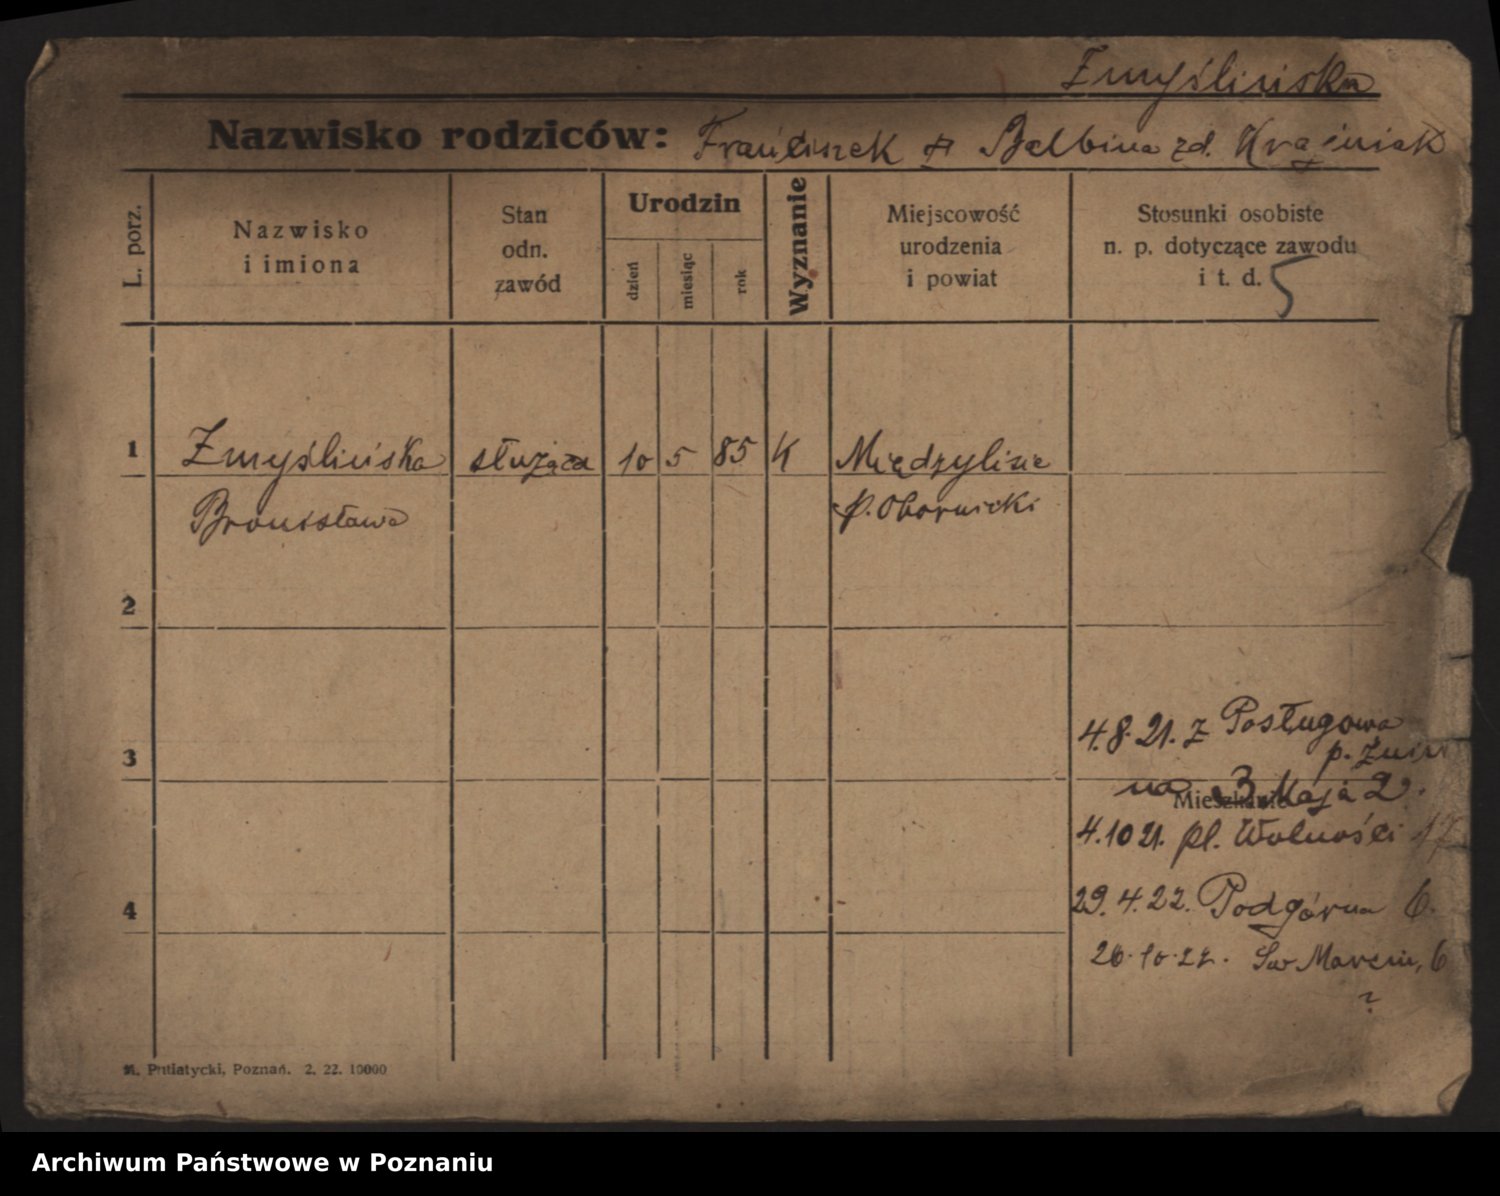 Zmyślińska
Nazwisko rodziców: Franciszek & Balbina zd. Krąśniak
L. porz.
Nazwisko
i imiona
Stan
odn.
zawód
Urodzin
dzień
miesiąc
rok
Wyznanie
Miejscowość
urodzenia
i powiat
Stosunki osobiste
n. p. dotyczące zawodu
i t. d. 5
1 Zmyślińska służąca 10 5 85 K Międzylisie
Bronisława p. Obornicki
2
3
4.8.21. z Posługowa
p. Żnin
na 3 Maja 2.
Mieszkanie
4.10 21. pl. Wolności 17
4
29.4.22. Podgórna 6.
26.10.22. Św Marcin, 6
?
M. Putiatycki, Poznań. 2. 22. 10000
Archiwum Państwowe w Poznaniu